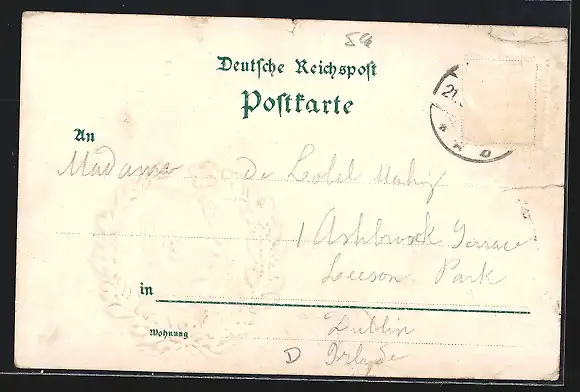 54
Deutsche Reichspost
Postkarte
21.
* A D
An
Madame de Lobel Mahy
1 Ashbrook Terrace
Leeson Park
in
Wohnung
Dublin
D Irlande